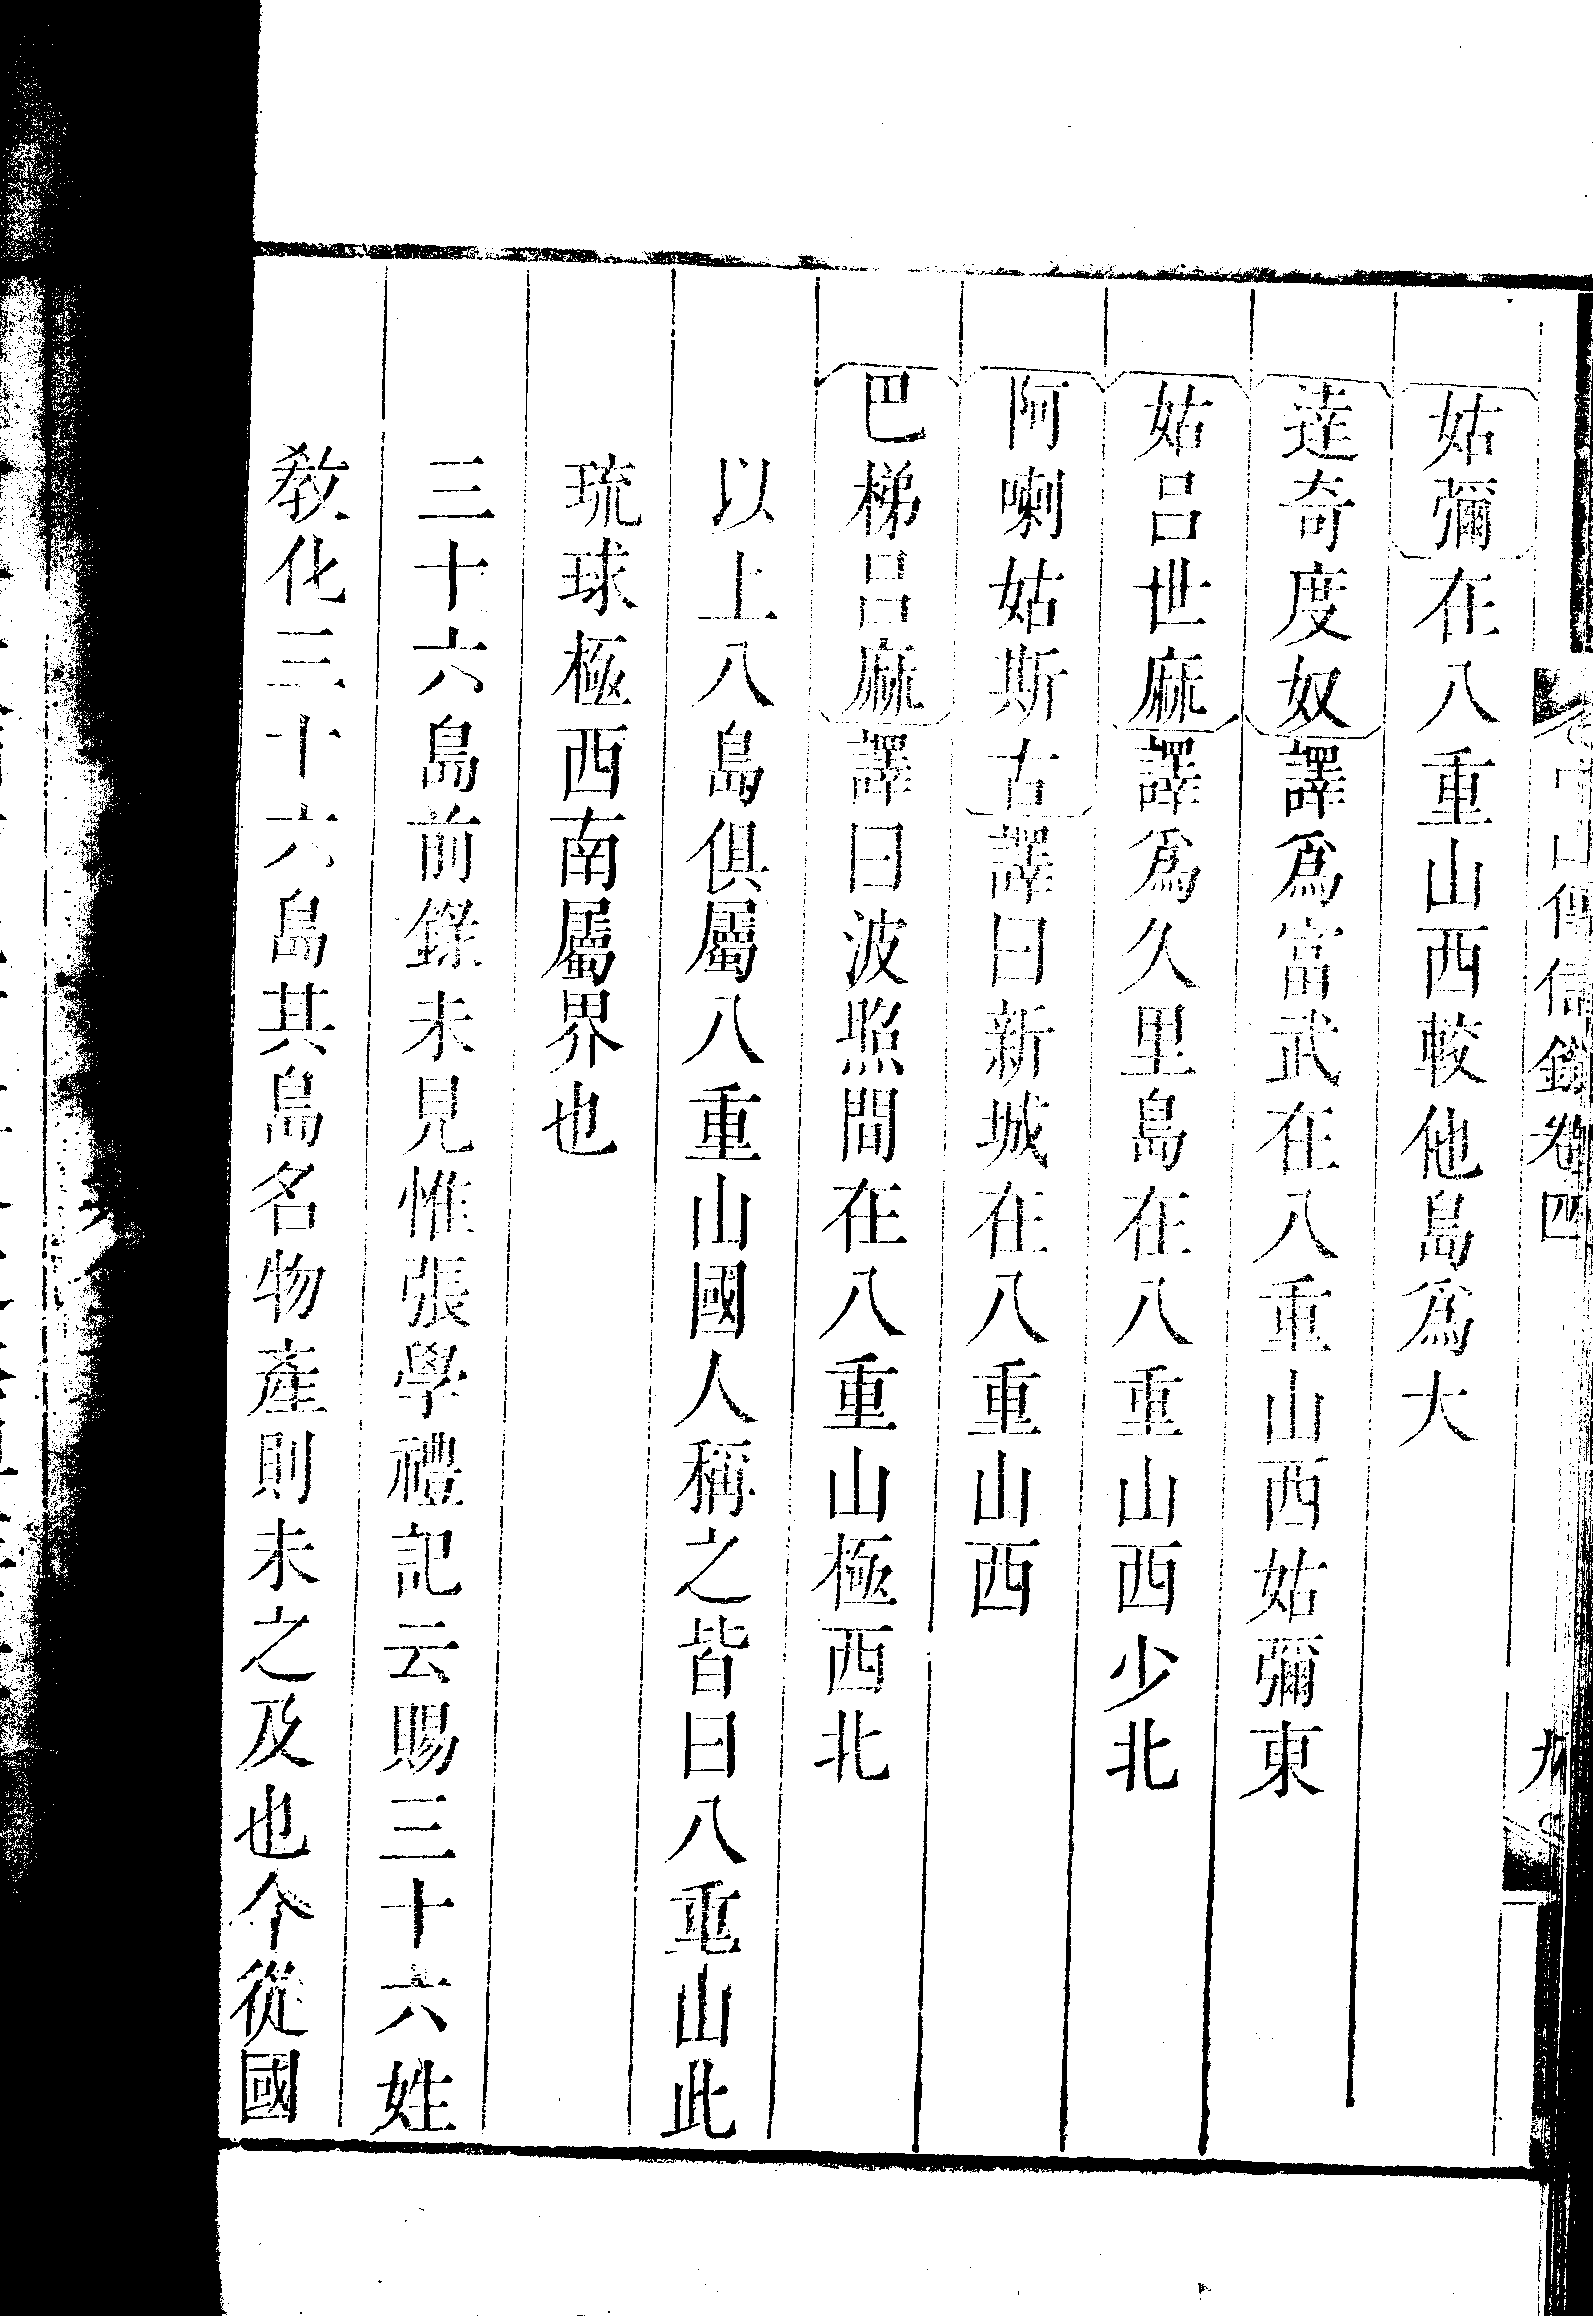 中山傳信錄卷四
九
姑彌在八重山西較他島爲大
逹奇度奴譯爲富武在八重山西姑彌東
姑呂世麻譯爲久里島在八重山西少北
阿喇姑斯古譯曰新城在八重山西
巴梯呂麻譯曰波照間在八重山極西北
以上八島俱屬八重山國人稱之皆曰八重山此
琉球極西南屬界也
三十六島前錄未見惟張學禮記云賜三十六姓
敎化三十六島其島名物產則未之及也今從國